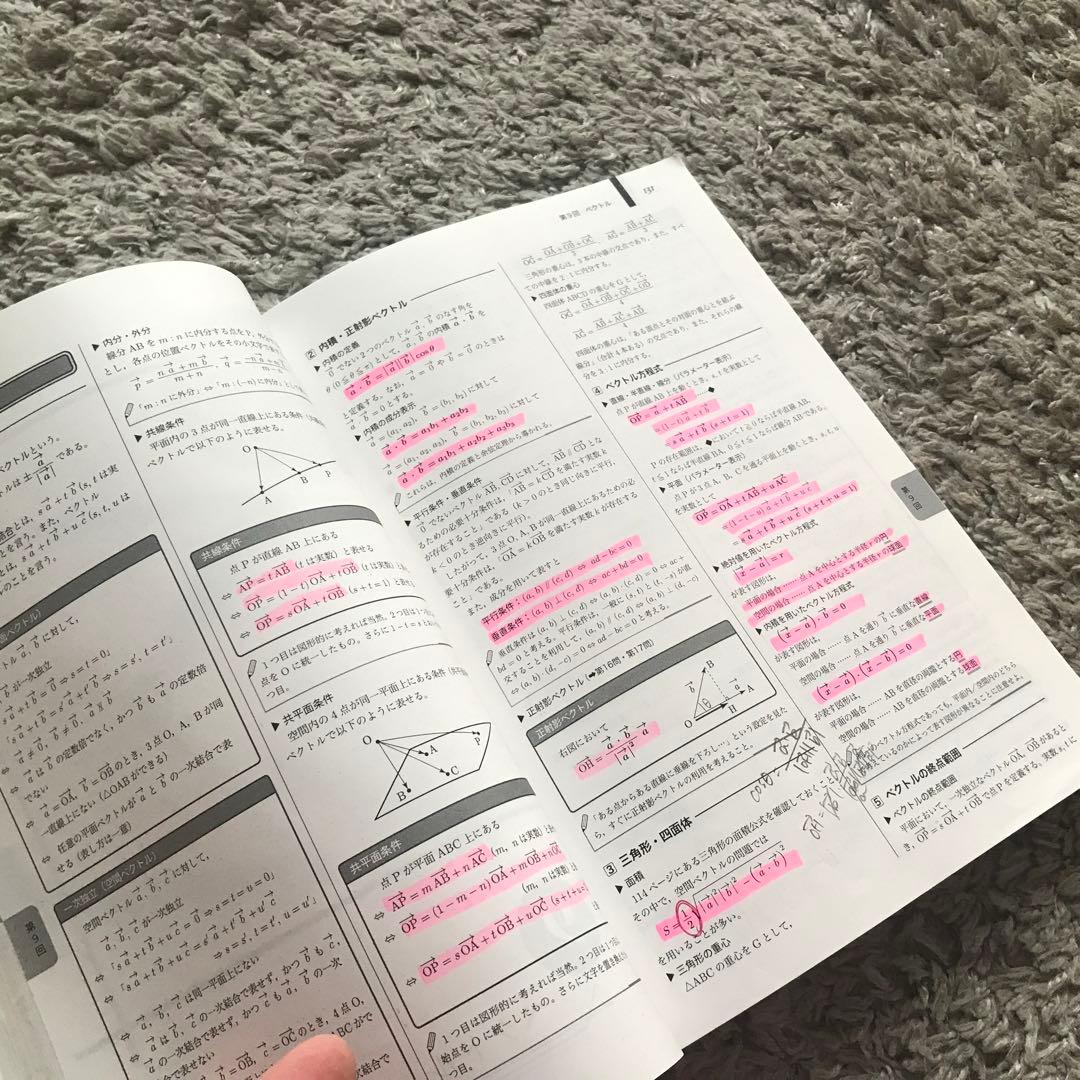 ベクトルという。
トルは±a/|a|である。
結合とは、s a + t b (s, t は実
を言う。また、ベクトル
とは、s a + t b + u c (s, t, u は
のことを言う。
面ベクトル)
トル a, b に対して、
b が一次独立
s a + t b = 0 ⇒ s = t = 0」
s a + t b = s' a + t' b ⇒ s = s', t = t'」
a ≠ 0, b ≠ 0, a ∦ b
a は b の定数倍でなく、かつ b も a の定数倍
でない
a = OA, b = OB のとき、3点 O, A, B が同
一直線上にない (△OAB ができる)
⇔ 任意の平面ベクトルが a と b の一次結合で表
せる (表し方は一意)
一次独立 (空間ベクトル)
空間ベクトル a, b, c に対して、
a, b, c が一次独立
⇔「s a + t b + u c = 0 ⇒ s = t = u = 0」
⇔「s a + t b + u c = s' a + t' b + u' c
⇒ s = s', t = t', u = u'」
⇔ a, b, c は同一平面上にない
⇔ a は b, c の一次結合で表せず、かつ b も c,
a の一次結合で表せず、かつ c も a, b の一次
結合で表せない
OB, c = OC のとき、4点 O,
第9回
▶内分・外分
線分 AB を m : n に内分する点を P,
とし、各点の位置ベクトルをその小文字で
p = (n a + m b)/(m + n),
「m : n に外分」⇔「m : (-n) に内分」
▶共線条件
平面内の3点が同一直線上にある条件
ベクトルで以下のように表せる。
O
A
B
P
共線条件
点 P が直線 AB 上にある
⇔ AP = t AB (t は実数) と表せる
⇔ OP = (1 - t) OA + t OB
⇔ OP = s OA + t OB (s + t = 1) と表せる
1つ目は図形的に考えれば当然。2つ目は
点を O に統一したもの。さらに 1 - t = s と
つ目。
▶共平面条件
空間内の4点が同一平面上にある条件
ベクトルで以下のように表せる。
O
A
P
C
B
共平面条件
点 P が平面 ABC 上にある
⇔ AP = m AB + n AC (m, n は実数)
⇔ OP = (1 - m - n) OA + m OB + n
(m, n は実数)
⇔ OP = s OA + t OB + u OC (s + t + u =
1つ目は図形的に考えれば当然。2つ目は
始点を O に統一したもの。さらに文字を置き換え
つ目。
第9回 ベクトル
131
② 内積・正射影ベクトル
▶内積の定義
0 でない2つのベクトル a, b のなす角を
θ (0 ≦ θ ≦ π) として、a, b の内積 a・b を
a・b = |a||b| cos θ
と定義する。なお、a = 0 や b = 0 のときは
a・b = 0 とする。
▶内積の成分表示
a = (a1, a2), b = (b1, b2) に対して
a・b = a1b1 + a2b2
a = (a1, a2, a3), b = (b1, b2, b3) に対して
a・b = a1b1 + a2b2 + a3b3
これらは、内積の定義と余弦定理から導かれる。
▶平行条件・垂直条件
0 でないベクトル AB, CD に対して、AB // CD とな
るための必要十分条件は、「AB = k CD を満たす実数 k
が存在すること」である (k > 0 のとき同じ向きに平行、
k < 0 のとき逆向きに平行)。
したがって、3点 O, A, B が同一直線上にあるための必
要十分条件は、「OA = k OB を満たす実数 k が存在する
こと」である。
また、成分を用いて表すと
平行条件:(a, b) // (c, d) ⇔ ad - bc = 0
垂直条件:(a, b) ⊥ (c, d) ⇔ ac + bd = 0
垂直条件は (a, b) ⊥ (c, d) ⇔ (a, b)・(c, d) = 0 ⇔ ac +
bd = 0 と考える。平行条件は、一般に (s, t) と (t, -s) が直
交することを利用して、(a, b) // (c, d) ⇔ (a, b) ⊥ (d, -c)
⇔ (a, b)・(d, -c) = 0 ⇔ ad - bc = 0 と考える。
▶正射影ベクトル (➡第16問・第17問)
正射影ベクトル
右図において
OH = (a・b)/|a|² a
B
b
θ
O
H
a
A
「ある点からある直線に垂線を下ろし…」という設定を見た
ら、すぐに正射影ベクトルの利用を考えること。
③ 三角形・四面体
▶面積
114ページにある三角形の面積公式を確認しておくこと。
その中で、空間ベクトルの問題では
S = 1/2 √(|a|²|b|² - (a・b)²)
を用いることが多い。
▶三角形の重心
△ABC の重心を G として、
OG = (OA + OB + OC)/3, AG = (AB + AC)/3
三角形の重心は、3本の中線の交点であり、また、すべ
ての中線を 2 : 1 に内分する。
▶四面体の重心
四面体 ABCD の重心を G として、
OG = (OA + OB + OC + OD)/4
AG = (AB + AC + AD)/4
四面体の重心は、「ある頂点とその対面の重心とを結ぶ
線分」(合計4本ある) の交点であり、また、それらの線
分を 3 : 1 に内分する。
④ ベクトル方程式
▶直線・半直線・線分 (パラメーター表示)
点 P が直線 AB 上を動くとき、s, t を実数として
OP = a + t AB ……◆
= (1 - t) a + t b
= s a + t b (s + t = 1)
P の存在範囲は、◆において t ≧ 0 ならば半直線 AB,
t ≦ 1 ならば半直線 BA, 0 ≦ t ≦ 1 ならば線分 AB である。
▶平面 (パラメーター表示)
点 P が3点 A, B, C を通る平面上を動くとき、s, t, u
を実数として
OP = OA + t AB + u AC
= (1 - t - u) a + t b + u c
= s a + t b + u c (s + t + u = 1)
▶絶対値を用いたベクトル方程式
|x - a| = r
が表す図形は、
平面の場合 …… 点 A を中心とする半径 r の円
空間の場合 …… 点 A を中心とする半径 r の球面
▶内積を用いたベクトル方程式
(x - a)・b = 0
が表す図形は、
平面の場合 …… 点 A を通り b に垂直な直線
空間の場合 …… 点 A を通り b に垂直な平面
(x - a)・(x - b) = 0
が表す図形は、
平面の場合 …… AB を直径の両端とする円
空間の場合 …… AB を直径の両端とする球面
ベクトル方程式であっても、平面内/空間内のどちら
考えているのかによって表す図形が異なることに注意せよ。
⑤ ベクトルの終点範囲
▶ベクトルの終点範囲
平面において、一次独立なベクトル OA, OB があると
き、OP = s OA + t OB で点 P を定義する。実数 s, t に
第9回